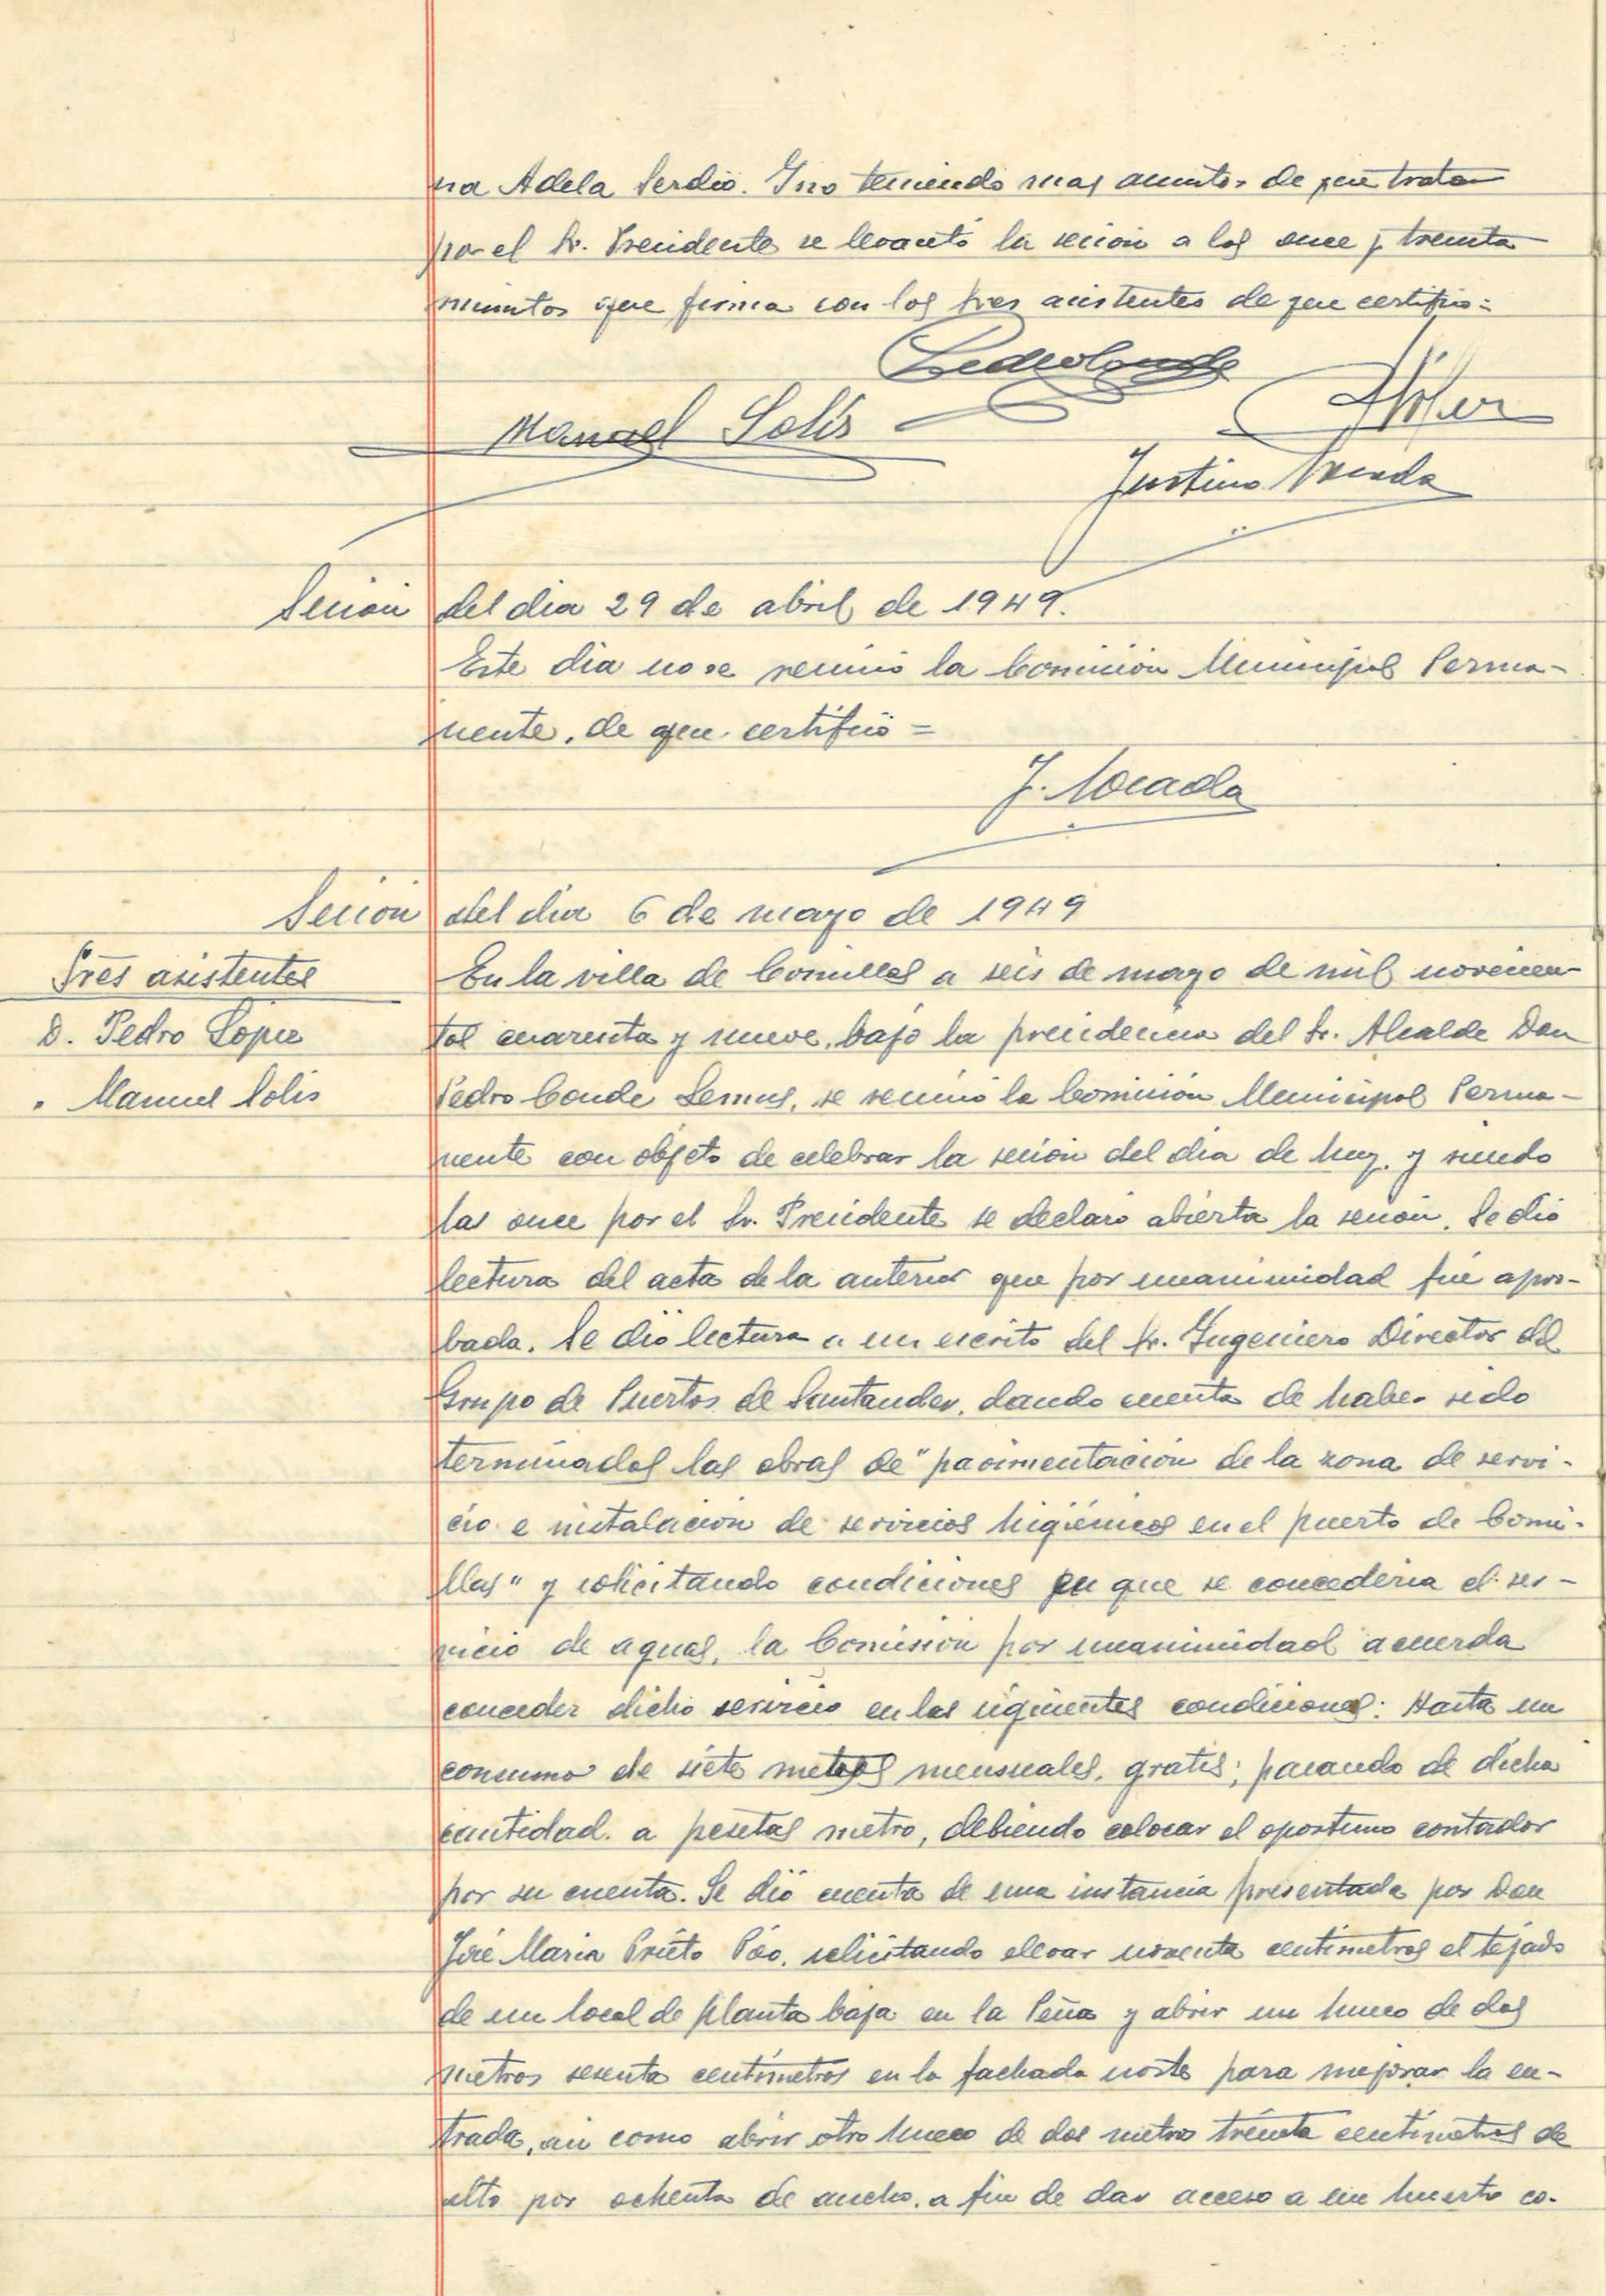 na Adela Serdio. Y no teniendo mas asuntos de que tratar
por el Sr. Presidente se levantó la sesion a las once y treinta
minutos que firma con los Sres asistentes de que certifico=
Pedro Conde
Manuel Solís
Justino Mocada
Sesion del dia 29 de abril de 1949.
Este dia no se reunió la Comisión Municipal Perma-
nente, de que certifico =
J. Mocada
Sesion del dia 6 de mayo de 1949
Sres asistentes
D. Pedro López
" Manuel Solis
En la villa de Comillas a seis de mayo de mil novecien-
tos cuarenta y nueve, bajo la presidencia del Sr. Alcalde Don
Pedro Conde Lemus, se reunió la Comisión Municipal Perma-
nente con objeto de celebrar la sesion del dia de hoy, y siendo
las once por el Sr. Presidente se declaró abierta la sesion. Se dió
lectura del acta de la anterior que por unanimidad fué apro-
bada. Se dió lectura a un escrito del Sr. Ingeniero Director del
Grupo de Puertos de Santander, dando cuenta de haber sido
terminadas las obras de "pavimentacion de la zona de servi-
cio e instalacion de servicios higiénicos en el puerto de Comi-
llas" y solicitando condiciones en que se concederia el ser-
vicio de aguas, la Comisión por unanimidad acuerda
conceder dicho servicio en las siguientes condiciones: Hasta un
consumo de siete metros mensuales, gratis; pasando de dicha
cantidad, a pesetas metro, debiendo colocar el oportuno contador
por su cuenta. Se dió cuenta de una instancia presentada por Don
José Maria Prieto Póo, solicitando elevar noventa centimetros el tejado
de un local de planta baja en la Peña y abrir un hueco de dos
metros sesenta centímetros en la fachada norte para mejorar la en-
trada, asi como abrir otro hueco de dos metros treinta centimetros de
alto por ochenta de ancho, a fin de dar acceso a un huerto co-